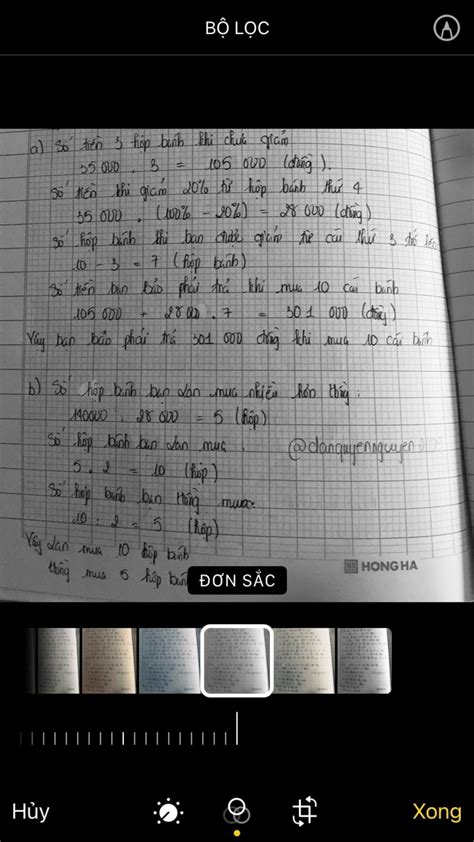 BỘ LỌC
a) Số tiền 3 hộp bánh khi chưa giảm
35 000 . 3 = 105 000 (đồng).
Số tiền khi giảm 20% từ hộp bánh thứ 4
35 000 . (100% - 20%) = 28 000 (đồng)
Số hộp bánh khi bạn được giảm từ cái thứ 3 trở lên
10 - 3 = 7 (hộp bánh)
Số tiền bạn Bảo phải trả khi mua 10 cái bánh
105 000 + 28 00 . 7 = 301 000 (đồng)
Vậy bạn bảo phải trả 301 000 đồng khi mua 10 cái bánh
b) Số hộp bánh bạn Lan mua nhiều hơn Hồng.
140000 : 28 000 = 5 (hộp)
Số hộp bánh bạn Lan mua.
@danquyennguyen
5 . 2 = 10 (hộp)
Số hộp bánh bạn Hồng mua:
10 : 2 = 5 (hộp)
Vậy Lan mua 10 hộp bánh
Hồng mua 5 hộp bánh
HONG HA
ĐƠN SẮC
Hủy
Xong